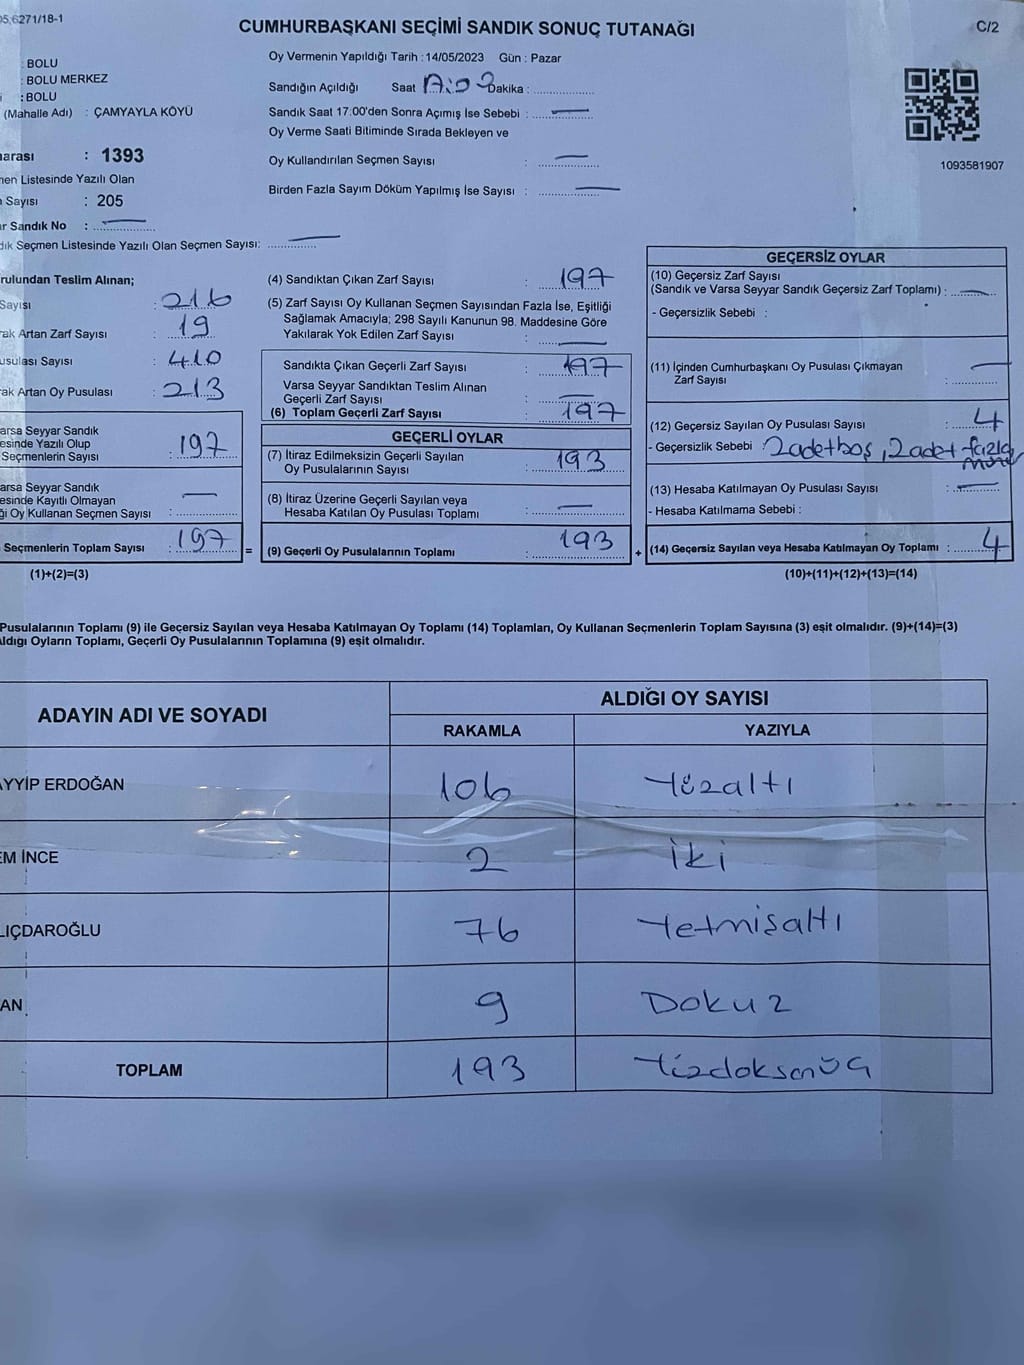 05.6271/18-1
CUMHURBAŞKANI SEÇİMİ SANDIK SONUÇ TUTANAĞI
C/2
: BOLU
: BOLU MERKEZ
: BOLU
(Mahalle Adı) : ÇAMYAYLA KÖYÜ
Oy Vermenin Yapıldığı Tarih : 14/05/2023 Gün : Pazar
Sandığın Açıldığı Saat Dakika :
Sandık Saat 17:00'den Sonra Açımış İse Sebebi :
Oy Verme Saati Bitiminde Sırada Bekleyen ve
Oy Kullandırılan Seçmen Sayısı :
Birden Fazla Sayım Döküm Yapılmış İse Sayısı :
1093581907
arası : 1393
men Listesinde Yazılı Olan
Sayısı : 205
r Sandık No :
dık Seçmen Listesinde Yazılı Olan Seçmen Sayısı:
rulundan Teslim Alınan;
Sayısı : 216
rak Artan Zarf Sayısı : 19
usulası Sayısı : 410
rak Artan Oy Pusulası : 213
arsa Seyyar Sandık
esinde Yazılı Olup
Seçmenlerin Sayısı : 197
arsa Seyyar Sandık
esinde Kayıtlı Olmayan
ği Oy Kullanan Seçmen Sayısı :
Seçmenlerin Toplam Sayısı : 197 =
(1)+(2)=(3)
(4) Sandıktan Çıkan Zarf Sayısı : 197
(5) Zarf Sayısı Oy Kullanan Seçmen Sayısından Fazla İse, Eşitliği
Sağlamak Amacıyla; 298 Sayılı Kanunun 98. Maddesine Göre
Yakılarak Yok Edilen Zarf Sayısı :
Sandıkta Çıkan Geçerli Zarf Sayısı : 197
Varsa Seyyar Sandıktan Teslim Alınan
Geçerli Zarf Sayısı :
(6) Toplam Geçerli Zarf Sayısı : 197
GEÇERLİ OYLAR
(7) İtiraz Edilmeksizin Geçerli Sayılan
Oy Pusulalarının Sayısı : 193
(8) İtiraz Üzerine Geçerli Sayılan veya
Hesaba Katılan Oy Pusulası Toplamı :
(9) Geçerli Oy Pusulalarının Toplamı : 193 +
GEÇERSİZ OYLAR
(10) Geçersiz Zarf Sayısı
(Sandık ve Varsa Seyyar Sandık Geçersiz Zarf Toplamı) :
- Geçersizlik Sebebi :
(11) İçinden Cumhurbaşkanı Oy Pusulası Çıkmayan
Zarf Sayısı :
(12) Geçersiz Sayılan Oy Pusulası Sayısı : 4
- Geçersizlik Sebebi : 2 adet boş, 2 adet fazla
(13) Hesaba Katılmayan Oy Pusulası Sayısı :
- Hesaba Katılmama Sebebi :
(14) Geçersiz Sayılan veya Hesaba Katılmayan Oy Toplamı : 4
(10)+(11)+(12)+(13)=(14)
Pusulalarının Toplamı (9) ile Geçersiz Sayılan veya Hesaba Katılmayan Oy Toplamı (14) Toplamları, Oy Kullanan Seçmenlerin Toplam Sayısına (3) eşit olmalıdır. (9)+(14)=(3)
ldığı Oyların Toplamı, Geçerli Oy Pusulalarının Toplamına (9) eşit olmalıdır.
ADAYIN ADI VE SOYADI
ALDIĞI OY SAYISI
RAKAMLA YAZIYLA
AYYİP ERDOĞAN 106 Yüzaltı
EM İNCE 2 İki
LIÇDAROĞLU 76 Yetmişaltı
AN 9 Dokuz
TOPLAM 193 Yüzdoksanüç